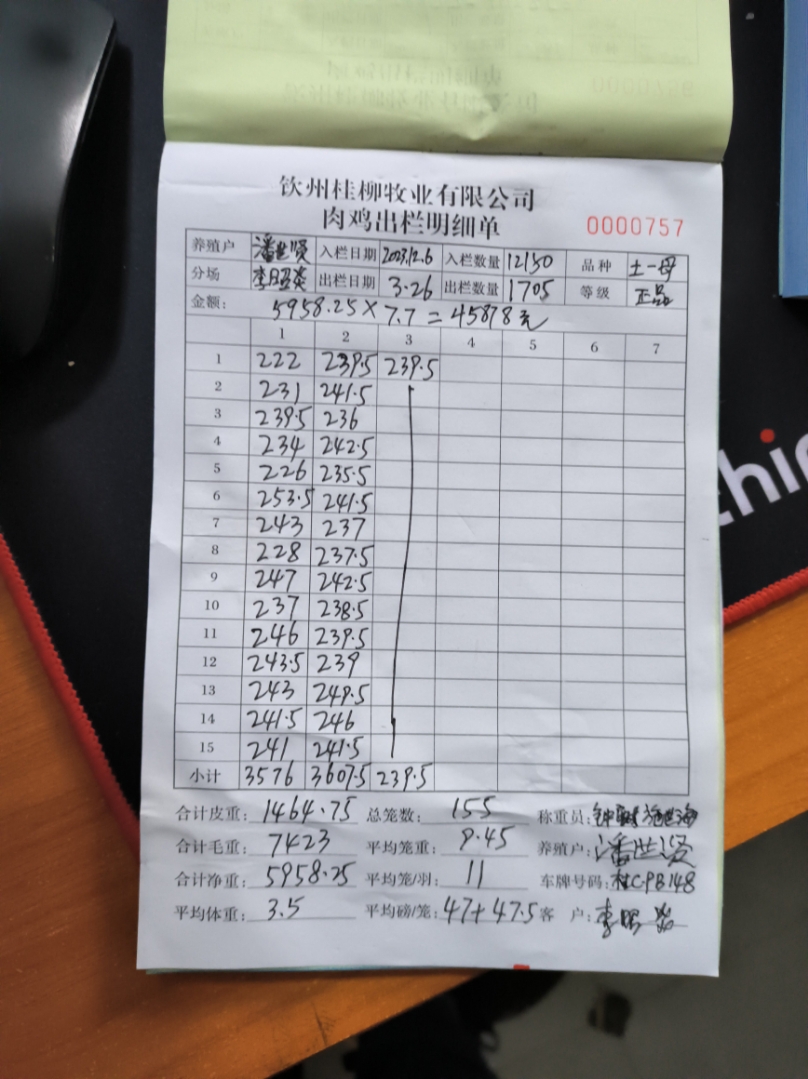 钦州桂柳牧业有限公司
肉鸡出栏明细单
0000757
养殖户 潘世贤 入栏日期 2023.12.6 入栏数量 12150 品种 土一母
分场 出栏日期 3.26 出栏数量 1705 等级 正品
金额: 5958.25×7.7=45878元
1 2 3 4 5 6 7
1 222 239.5 239.5
2 231 241.5
3 239.5 236
4 234 242.5
5 226 235.5
6 253.5 241.5
7 243 237
8 228 237.5
9 247 242.5
10 237 238.5
11 246 239.5
12 243.5 239
13 243 249.5
14 241.5 246
15 241 241.5
小计 3576 3607.5 239.5
合计皮重: 1464.75 总笼数: 155 称重员:
合计毛重: 7423 平均笼重: 9.45 养殖户: 潘世贤
合计净重: 5958.25 平均笼/羽: 11 车牌号码: 桂CPB148
平均体重: 3.5 平均磅/笼: 47+47.5 客 户:
hi